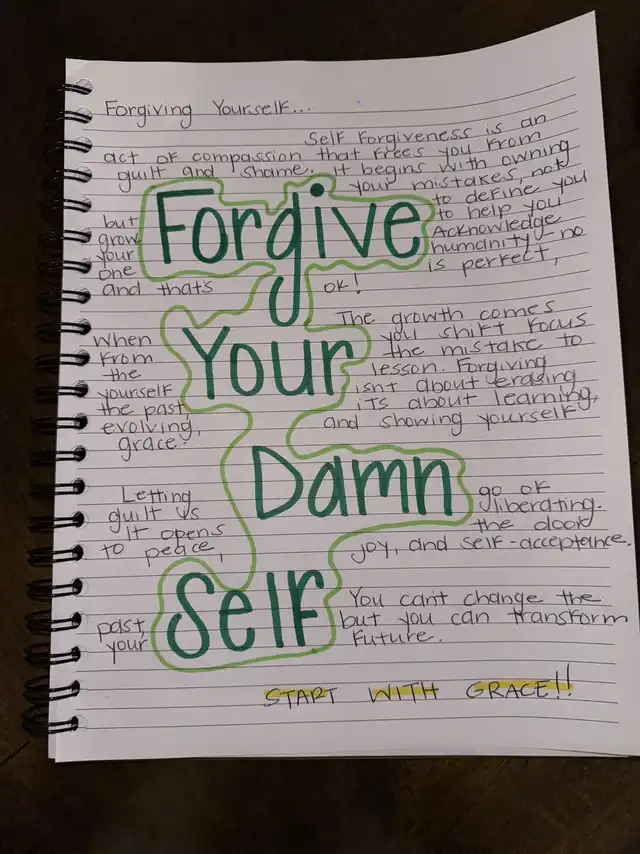 Forgiving Yourself...
Self Forgiveness is an
act of compassion that frees you from
guilt and shame. It begins with owning
your mistakes, not
to define you
but to help you
grow. Acknowledge
your humanity - no
one is perfect,
and that's ok!
The growth comes
When you shift focus
from the mistake to
the lesson. Forgiving
yourself isnt about erasing
the past, its about learning,
evolving, and showing yourself
grace.
Letting go of
guilt is liberating.
It opens the door
to peace, joy, and self-acceptance.
You can't change the
past, but you can transform
your future.
Forgive
Your
Damn
Self
START WITH GRACE!!